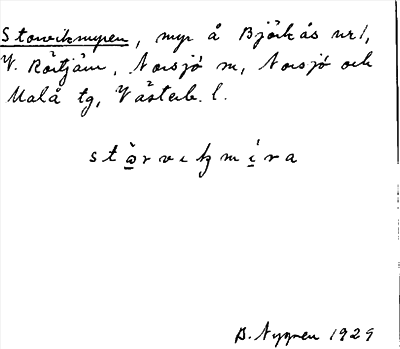 Storvikmyren, myr å Björkås nr 1,
V. Rötjärn, Norsjö sn, Norsjö och
Malå tg, Västerb. l.
stȯrvikmira
B. Nygren 1929